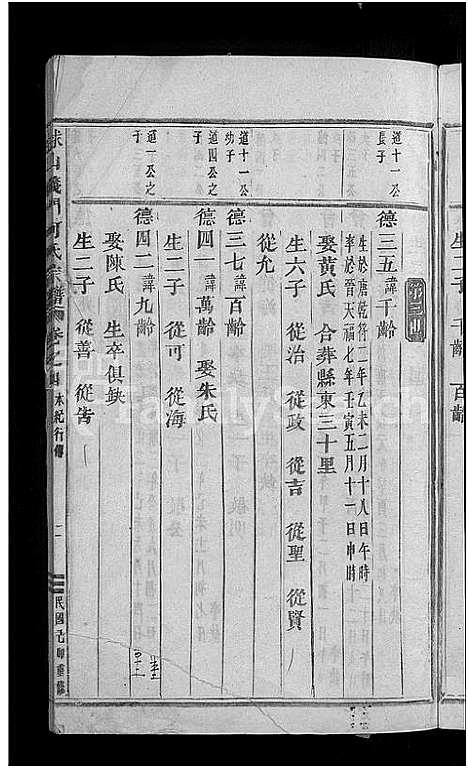 第三世
道十一公
長子
德三五諱千齡
生於唐乾符二年乙未二月十八日午時
卒於晉天福七年壬寅五月十一日申時
娶黃氏 合葬縣東三十里
生六子 從治 從政 從吉 從聖 從賢
從允
道十一公
幼子
德三七諱百齡
道四公之
子
德四一諱萬齡 娶朱氏
生二子 從可 從海
道一公之
子
德四二諱九齡
娶陳氏 生卒俱缺
生二子 從善 從告
山義門
氏宗譜
卷之四
行傳
二
民國
重修